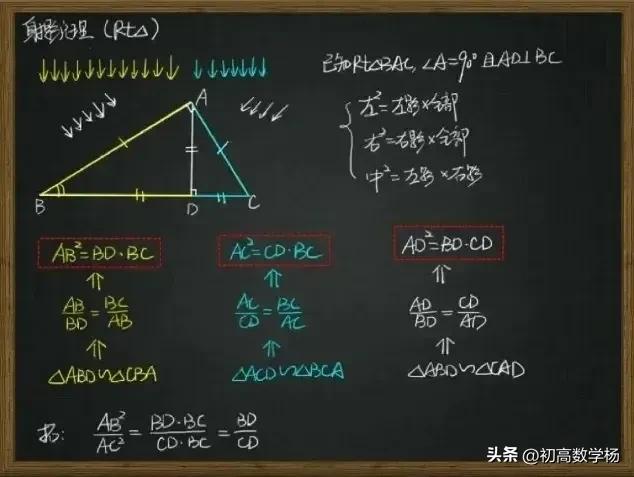 射影定理（Rt△）
已知Rt△BAC,∠A=90°且AD⊥BC
左²=左影×全部
右²=右影×全部
中²=左影×右影
A
B
D
C
AB²=BD·BC
AC²=CD·BC
AD²=BD·CD
⇑
⇑
⇑
AB/BD=BC/AB
AC/CD=BC/AC
AD/BD=CD/AD
⇑
⇑
⇑
△ABD∽△CBA
△ACD∽△BCA
△ABD∽△CAD
拓: AB²/AC²=BD·BC/CD·BC=BD/CD
头条 @初高数学杨